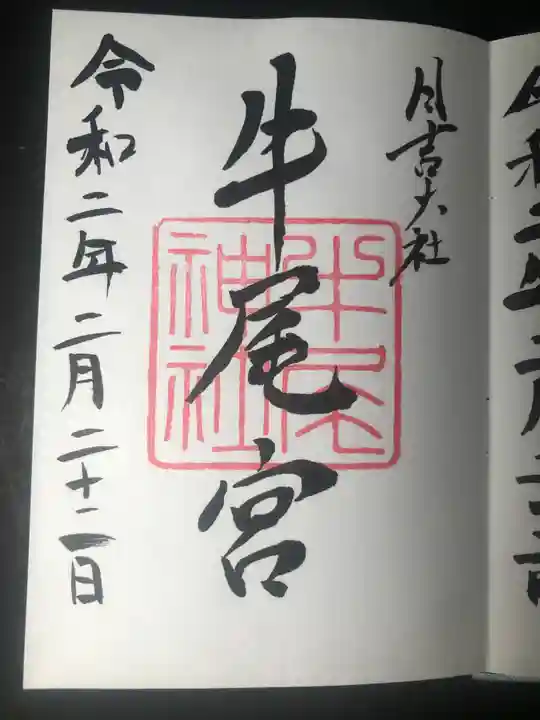 日吉大社
牛尾宮
牛尾神社
令和二年二月二十二日
令和二年二月二